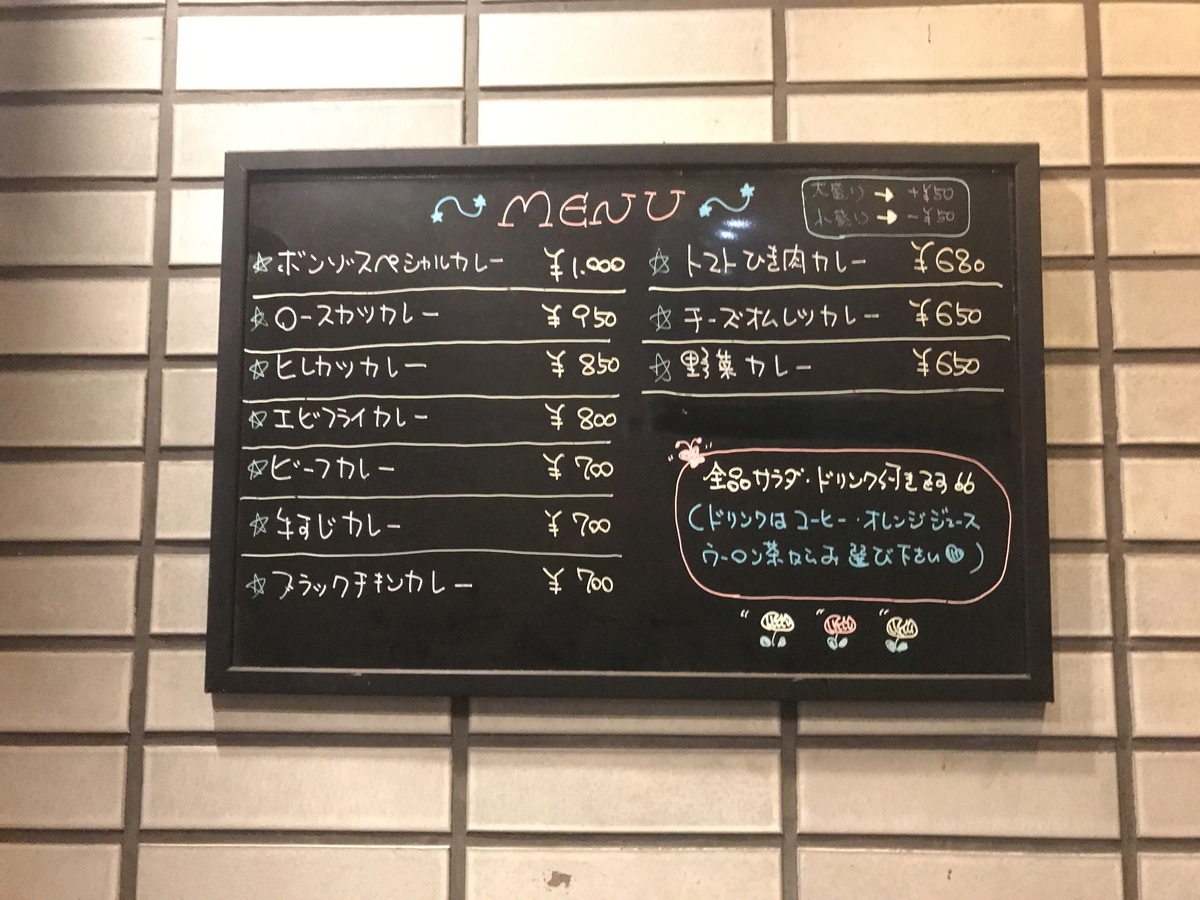 MENU
大盛り → +¥50
小盛り → -¥50
☆ボンゾスペシャルカレー ¥1.000
☆ロースカツカレー ¥950
☆ヒレカツカレー ¥850
☆エビフライカレー ¥800
☆ビーフカレー ¥700
☆牛すじカレー ¥700
☆ブラックチキンカレー ¥700
☆トマトひき肉カレー ¥680
☆チーズオムレツカレー ¥650
☆野菜カレー ¥650
全品サラダ・ドリンク付きです
(ドリンクはコーヒー・オレンジジュース
ウーロン茶からお選び下さい)